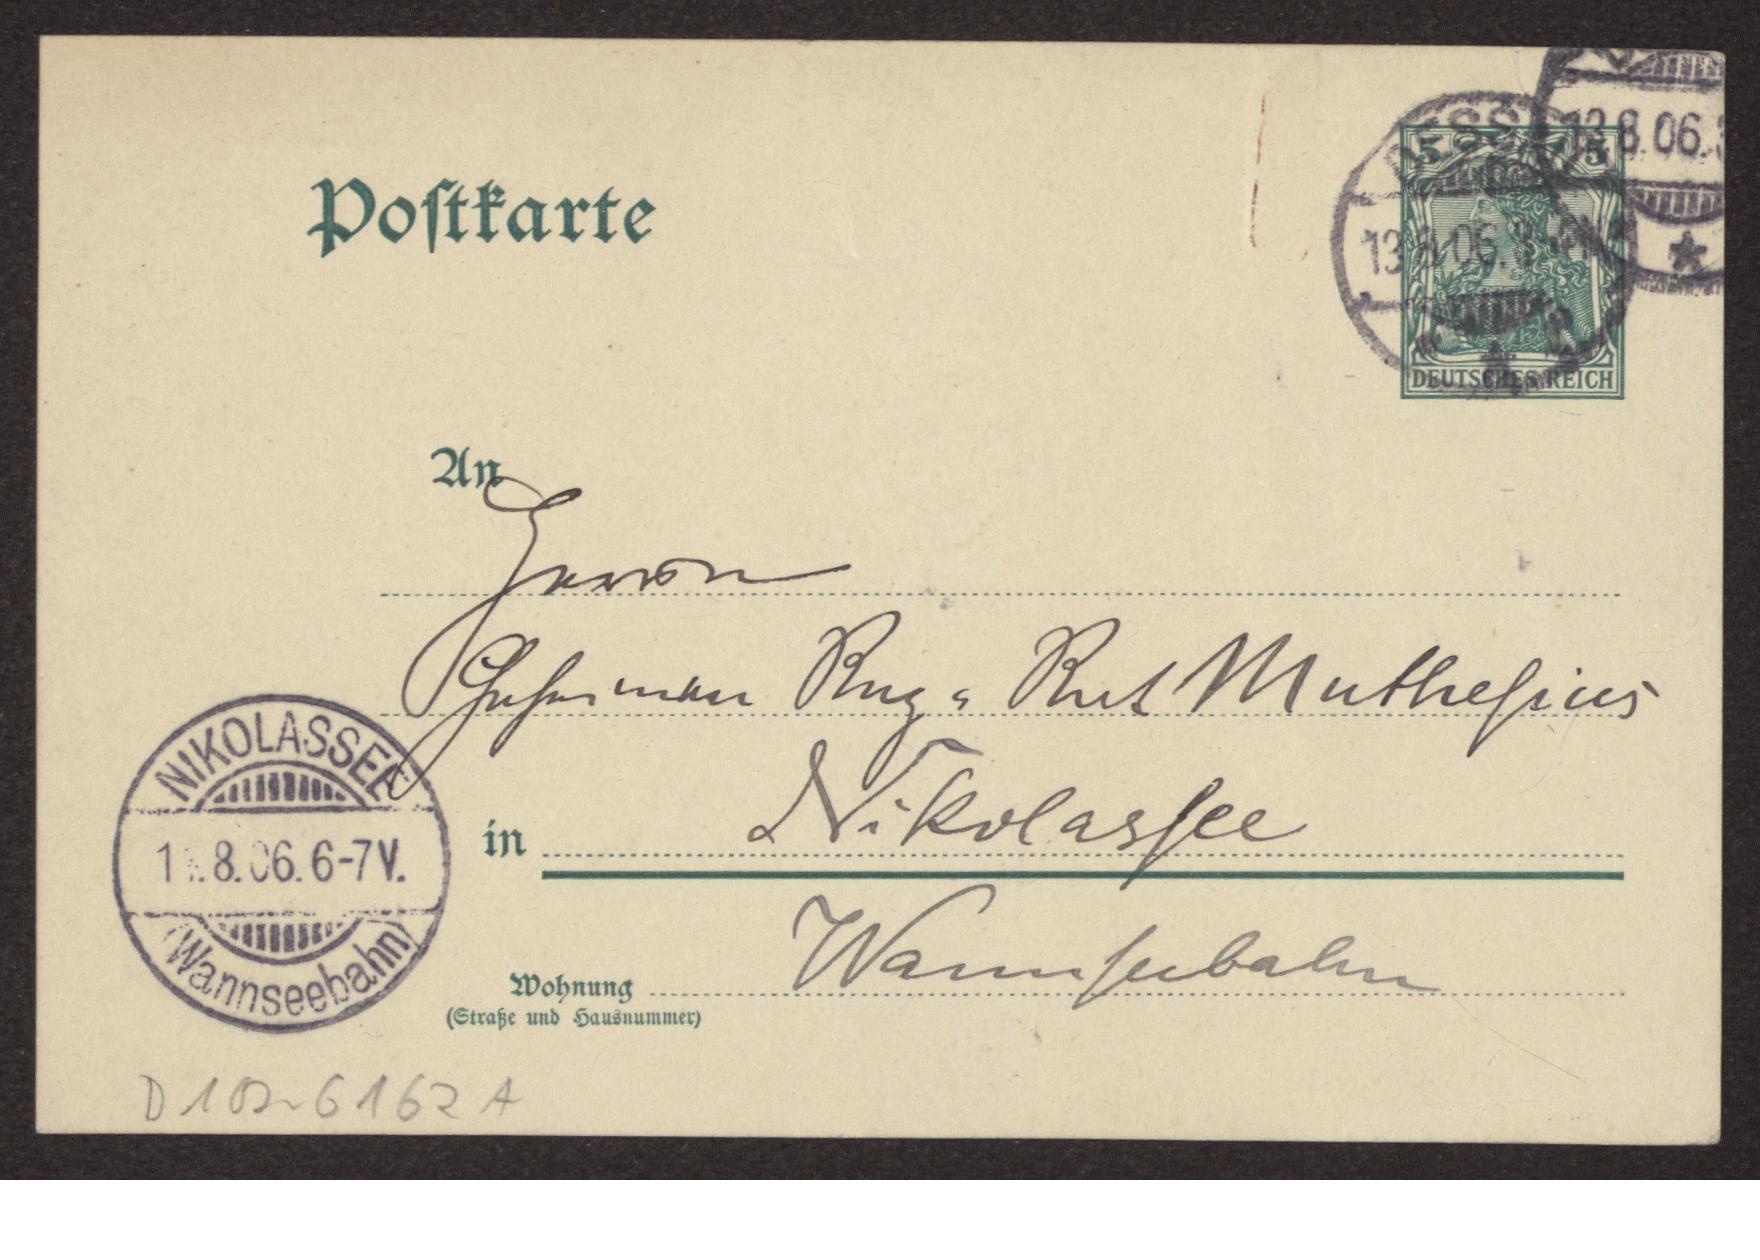 Postkarte
DESSAU
13.8.06.
13.8.06.
5 5
DEUTSCHES REICH
An
Herrn
Geheimen Reg. Rat Muthesius
in Nikolassee
Wannseebahn
Wohnung
(Straße und Hausnummer)
NIKOLASSEE
8.06.6-7V.
(Wannseebahn)
6162 A